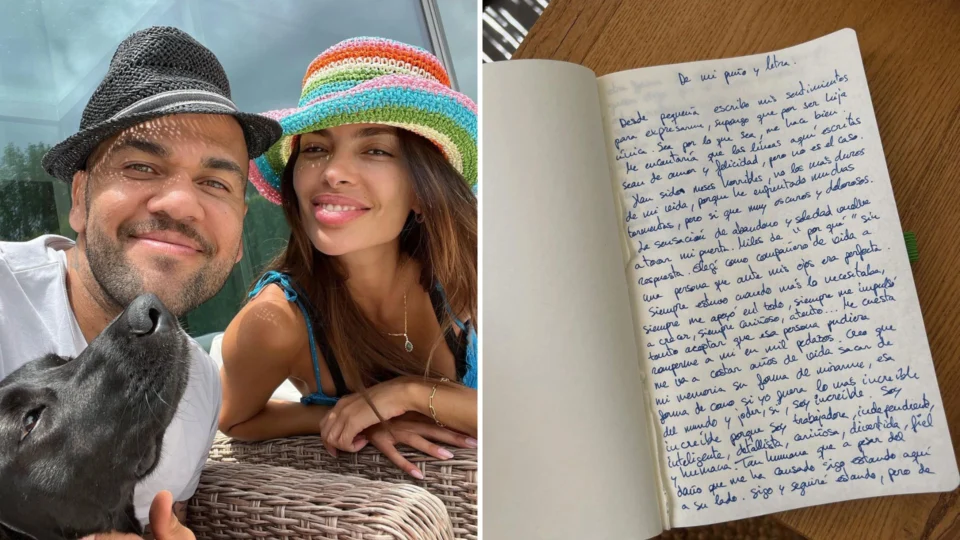 De mi puño y letra.
Desde pequeña escribo mis sentimientos
para expresarme, supongo que por ser hija
única. Sea por lo que sea, me hace bien.
Me encantaría que las líneas aquí escritas
sean de amor y felicidad, pero no es el caso.
Han sidos meses horribles, no los más duros
de mi vida, porque he enfrentado muchas
tormentas, pero si que muy oscuros y dolorosos.
La sensación de abandono y soledad vuelve
a tocar mi puerta. Miles de "por qué" sin
respuesta. Elegí como compañero de vida a
una persona que ante mis ojos era perfecta.
siempre estuvo cuando más lo necesitaba,
siempre me apoyó en todo, siempre me impulsó
a crecer, siempre cariñoso, atento... Me cuesta
tanto aceptar que esa persona pudiera
romperme a mí en mil pedazos. Creo que
me va a costar años de vida sacar de
mi memoria su forma de mirarme, esa
forma de como si yo fuera lo más increíble
del mundo y joder, sí, soy increíble. Soy
increíble porque soy trabajadora, independiente,
inteligente, detallista, cariñosa, divertida, fiel
y humana. Tan humana que a pesar del
daño que me ha causado sigo estando aquí
a su lado. Sigo y seguiré estando, pero de